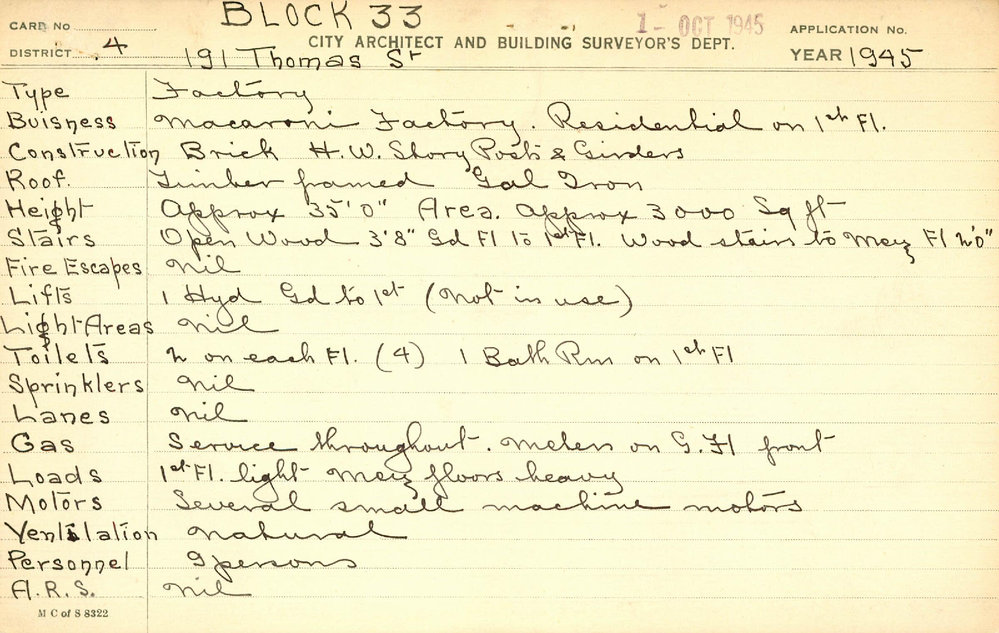 BLOCK 33
1 - OCT 1945
CARD No
CITY ARCHITECT AND BUILDING SURVEYOR'S DEPT.
APPLICATION No.
DISTRICT 4
191 Thomas St
YEAR 1945
Type Factory
Buisness Macaroni Factory. Residential on 1st Fl.
Construction Brick H.W. Story Posts & Girders
Roof. Timber framed Gal Iron
Height Approx 35'0" Area. approx 3000 Sq ft
Stairs Open Wood 3'8" Gd Fl to 1st Fl. Wood stairs to Mezz Fl 2'0"
Fire Escapes Nil
Lifts 1 Hyd Gd to 1st (Not in use)
Light Areas Nil
Toilets 2 on each Fl. (4) 1 Bath Rm on 1st Fl
Sprinklers Nil
Lanes Nil
Gas Service throughout. Meters on G. Fl front
Loads 1st Fl. light Mezz floors heavy
Motors Several small machine motors
Ventilation Natural
Personnel 9 persons
A.R.S. Nil
M C of S 8322